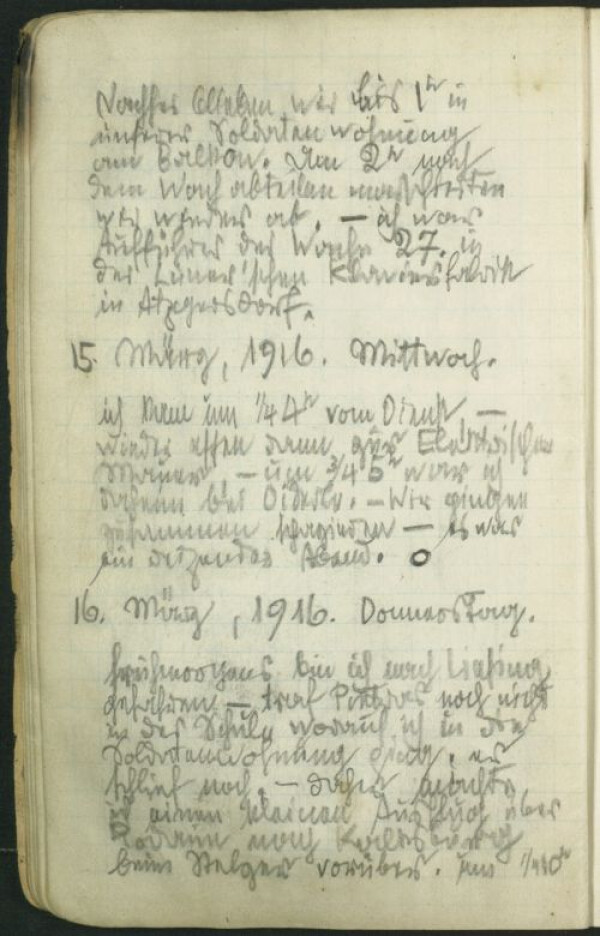 Nachher blieben wir bis 1ʰ in
unserer Soldatenwohnung
am Balkon. Um 2ʰ nach
dem Wach abteilen marschierten
wir wieder ab. — ich war
Aufführer der Wache 27. in
der Luner'schen Klavierfabrik
in Atzgersdorf.
15. März, 1916. Mittwoch.
ich kam um 1/4 4ʰ vom Dienst, —
wieder essen dann zur Elektrischen
Mauer, — um 3/4 5ʰ war ich
daheim bei Diderle. — Wir gingen
zusammen spazieren — es war
ein reizender Abend. o
16. März, 1916. Donnerstag.
frühmorgens bin ich nach Liesing
gefahren — traf noch nicht
in der Schule worauf ich in die
Soldatenwohnung ging, er
schlief noch, — daher machte
ich einen kleinen Ausflug über
Rodaun nach Kalksburg
beim Stelzer vorüber. um 1/4 10ʰ